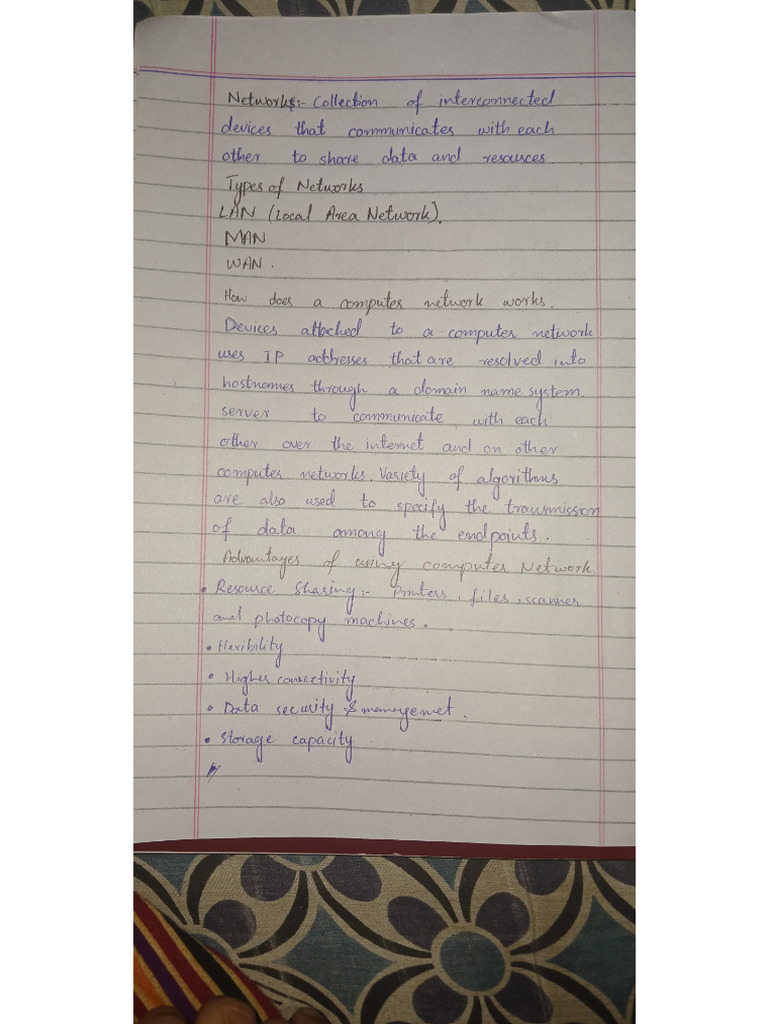 Networks:- Collection of interconnected
devices that communicates with each
other to share data and resources
Types of Networks
LAN (Local Area Network).
MAN
WAN.
How does a computer network works.
Devices attached to a computer network
uses IP addresses that are resolved into
hostnames through a domain name system.
server to communicate with each
other over the internet and on other
computer networks. Variety of algorithms
are also used to specify the transmission
of data among the endpoints.
Advantages of using computer Network
• Resource Sharing:- Printers, files, scanner
and photocopy machines.
• Flexibility
• Higher connectivity
• Data security & managemet.
• Storage capacity